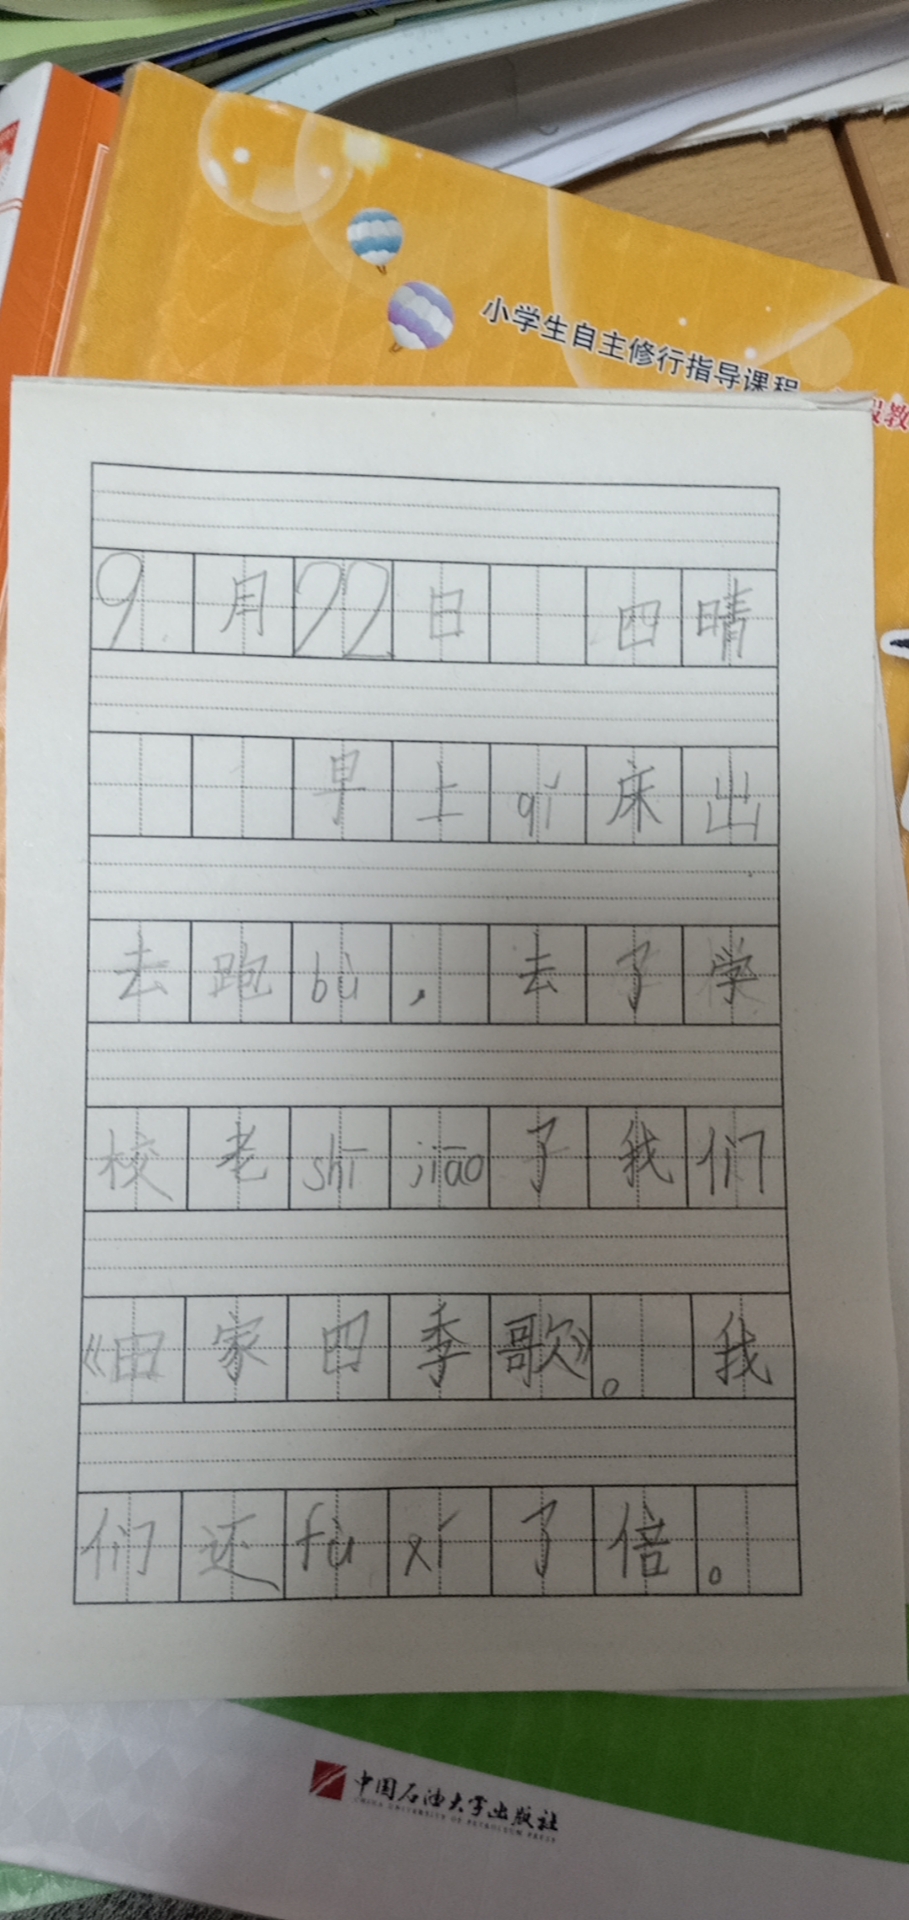 小学生自主修行指导课程
报教
9月22日 四晴
早上qǐ床出
去跑bù，去了学
校老shī jiāo了我们
《田家四季歌》。我
们还fù xí了倍。
中国石油大学出版社
CHINA UNIVERSITY OF PETROLEUM PRESS